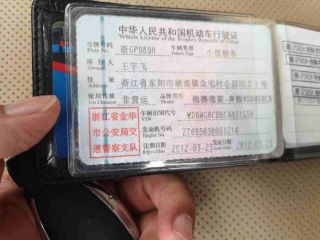 中华人民共和国机动车行驶证
Vehicle License of the People's Republic of China
号牌号码 Plate No. 浙GP989H 车辆类型 Vehicle Type 小型轿车
所有人 Owner 王宇飞
住址 Address 浙江省东阳市湖溪镇金宅村小后弄27号
使用性质 Use Character 非营运 品牌型号 Model 梅赛德斯-奔驰
浙江省金华
市公安局交
通警察支队
车辆识别代号 VIN
发动机号码 Engine No. 27695030901214
注册日期 Register Date 2012-03-23 发证日期 Issue Date 2012-03-23